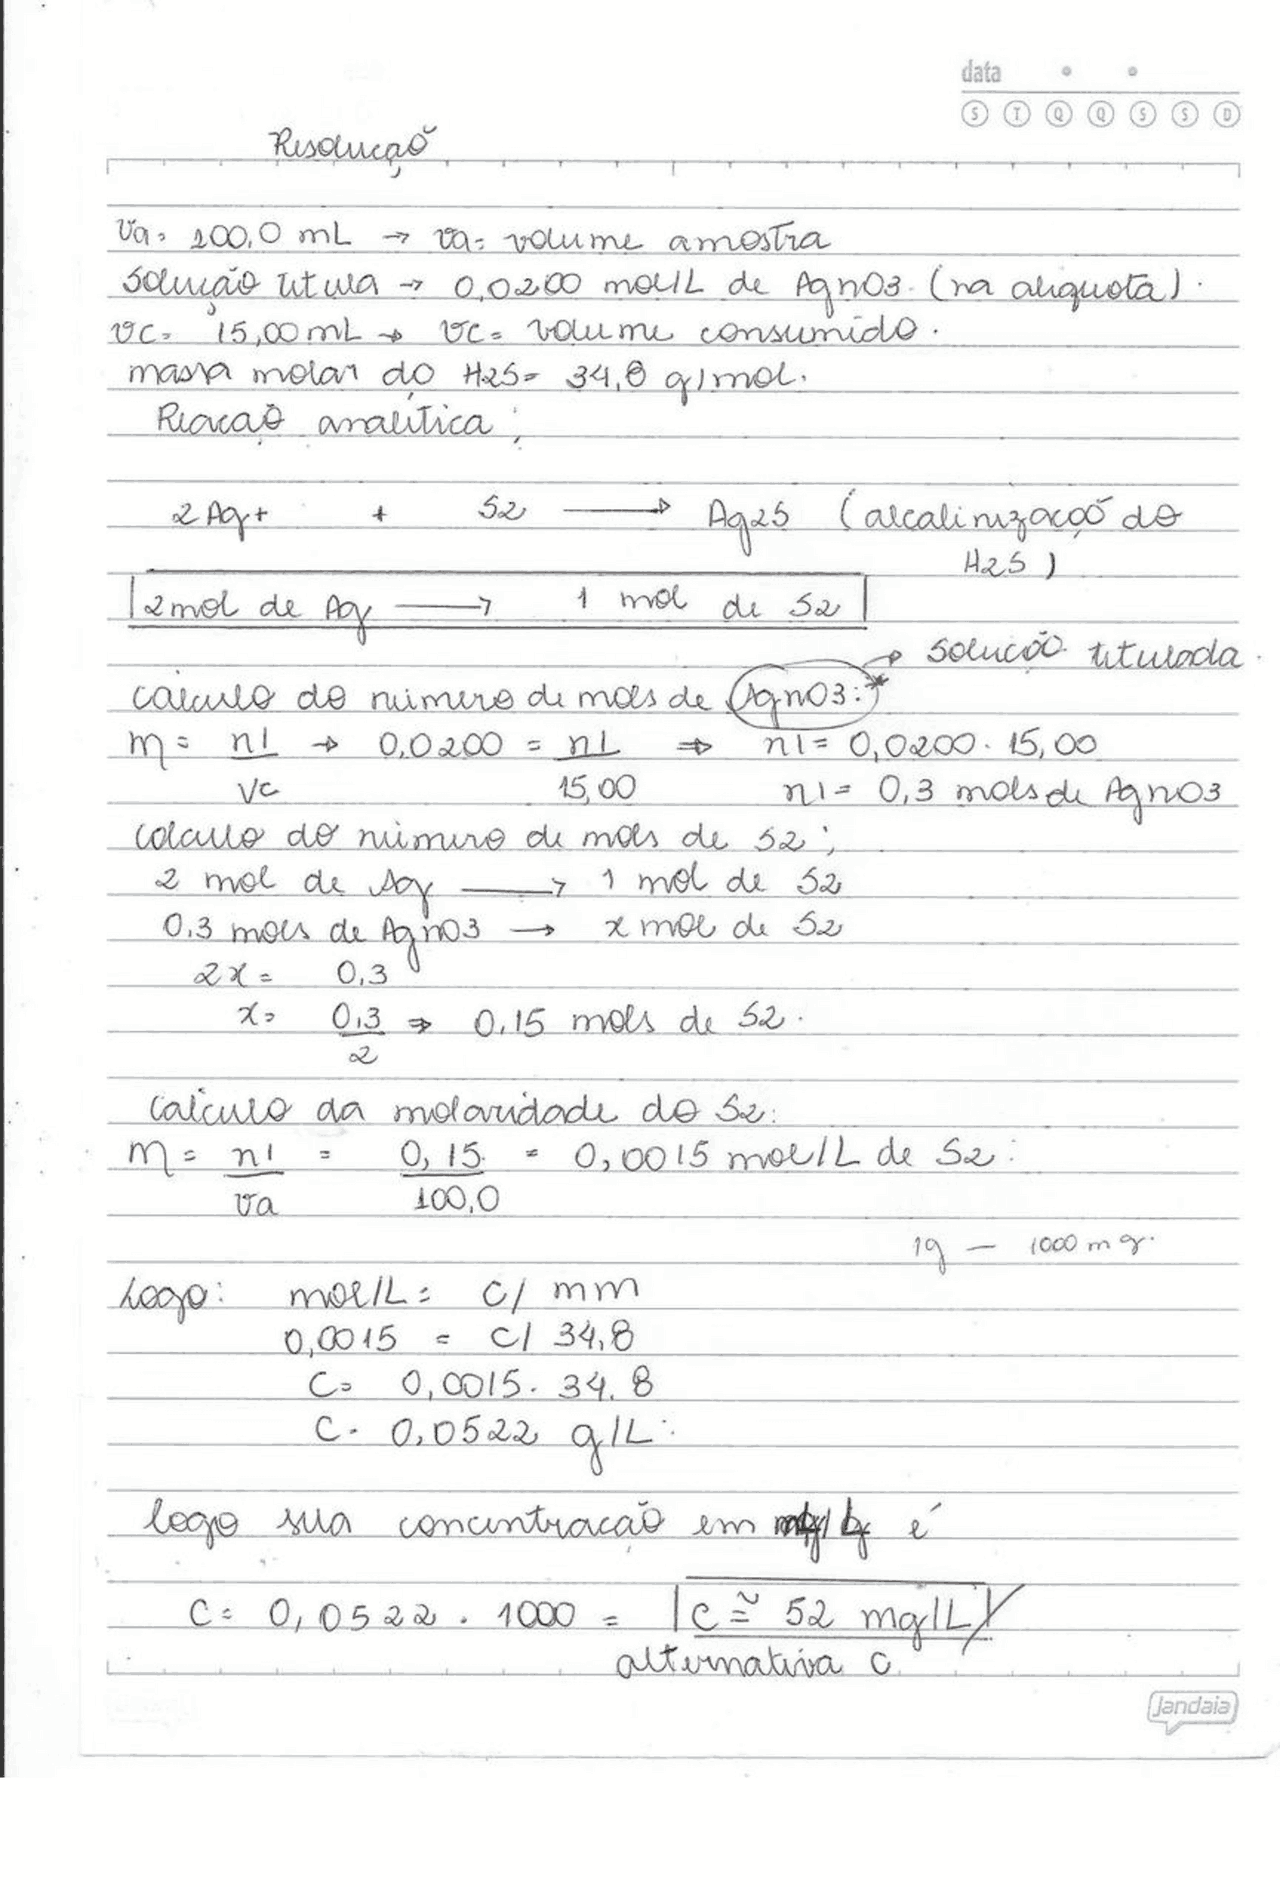 data
S T Q Q S S D
Resolução
Va = 100,0 mL → va = volume amostra
Solução titula → 0,0200 mol/L de AgnO3. (na aliquota).
vc = 15,00 mL → vc = volume consumido.
massa molar do H2S = 34,8 g/mol.
Reação analítica;
2 Ag+ + S2 → Ag2S (alcalinização do
H2S)
2 mol de Ag → 1 mol de S2
→ Solução titulada.
cálculo do número de mols de AgnO3:*
m = n1 → 0,0200 = n1 ⇒ n1 = 0,0200 . 15,00
vc 15,00 n1 = 0,3 mols de AgnO3
cálculo do número de mols de S2;
2 mol de Ag → 1 mol de S2
0,3 mols de AgnO3 → x mol de S2
2x = 0,3
x = 0,3 ⇒ 0,15 mols de S2.
2
Cálculo da molaridade do S2:
m = n1 = 0,15 = 0,0015 mol/L de S2:
va 100,0
1g — 1000 mg.
Logo: mol/L = C/ mm
0,0015 = C/ 34,8
C = 0,0015 . 34,8
C = 0,0522 g/L:
logo sua concentração em é
C = 0,0522 . 1000 = C ≅ 52 mg/L
alternativa c
Jandaia